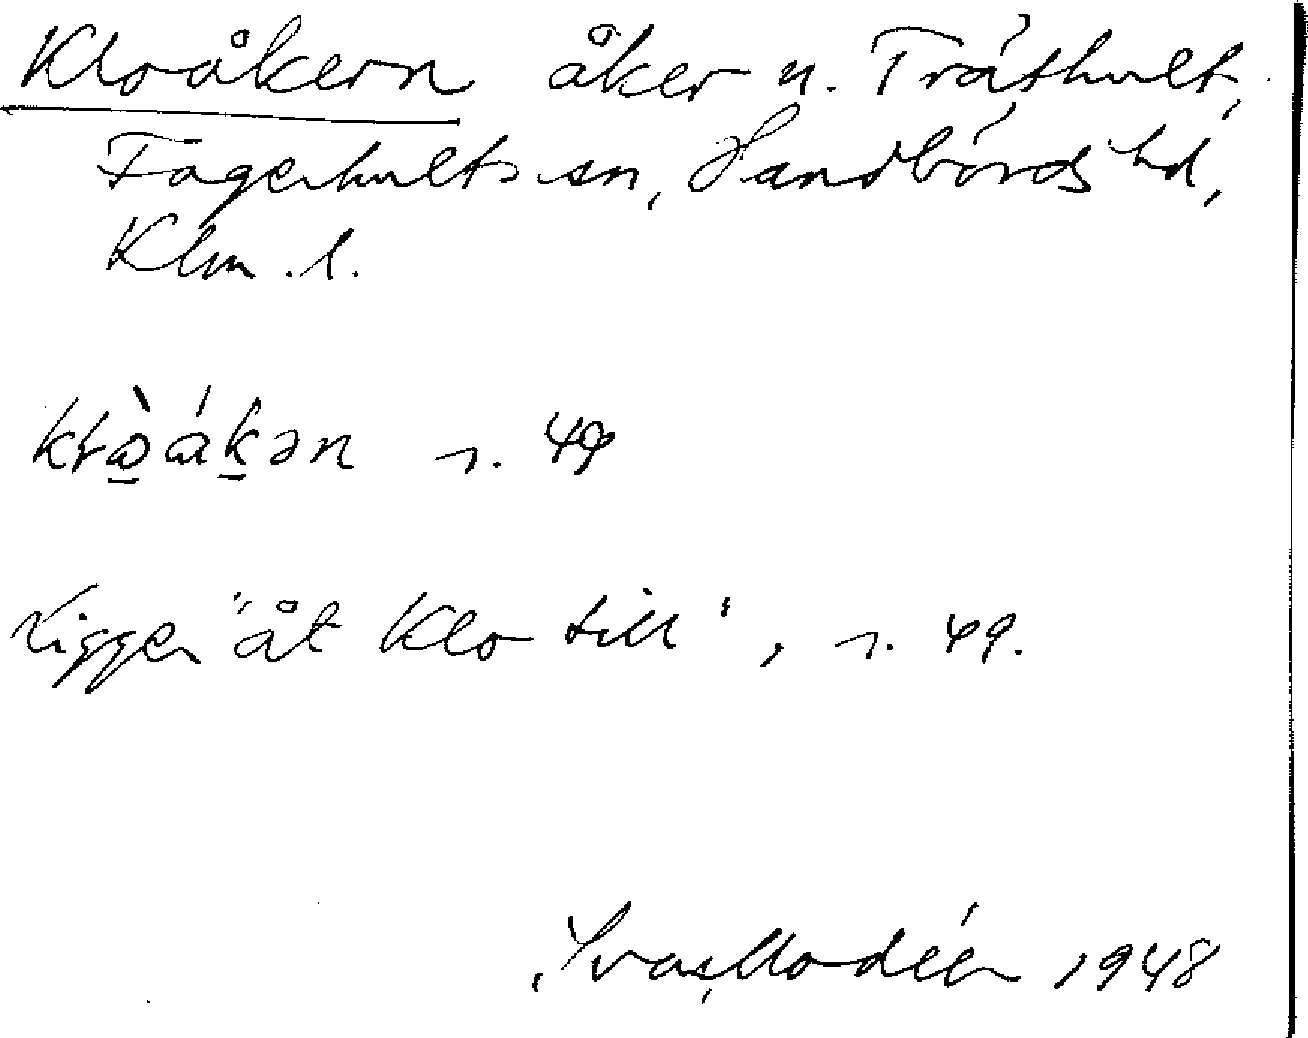 Kloåkern åker u. Tråthult,
Fagerhults sn, Handbörds hd,
Klm. l.
r. 49
Ligger "åt Klo till", r. 49.
Ivar Modéer 1948